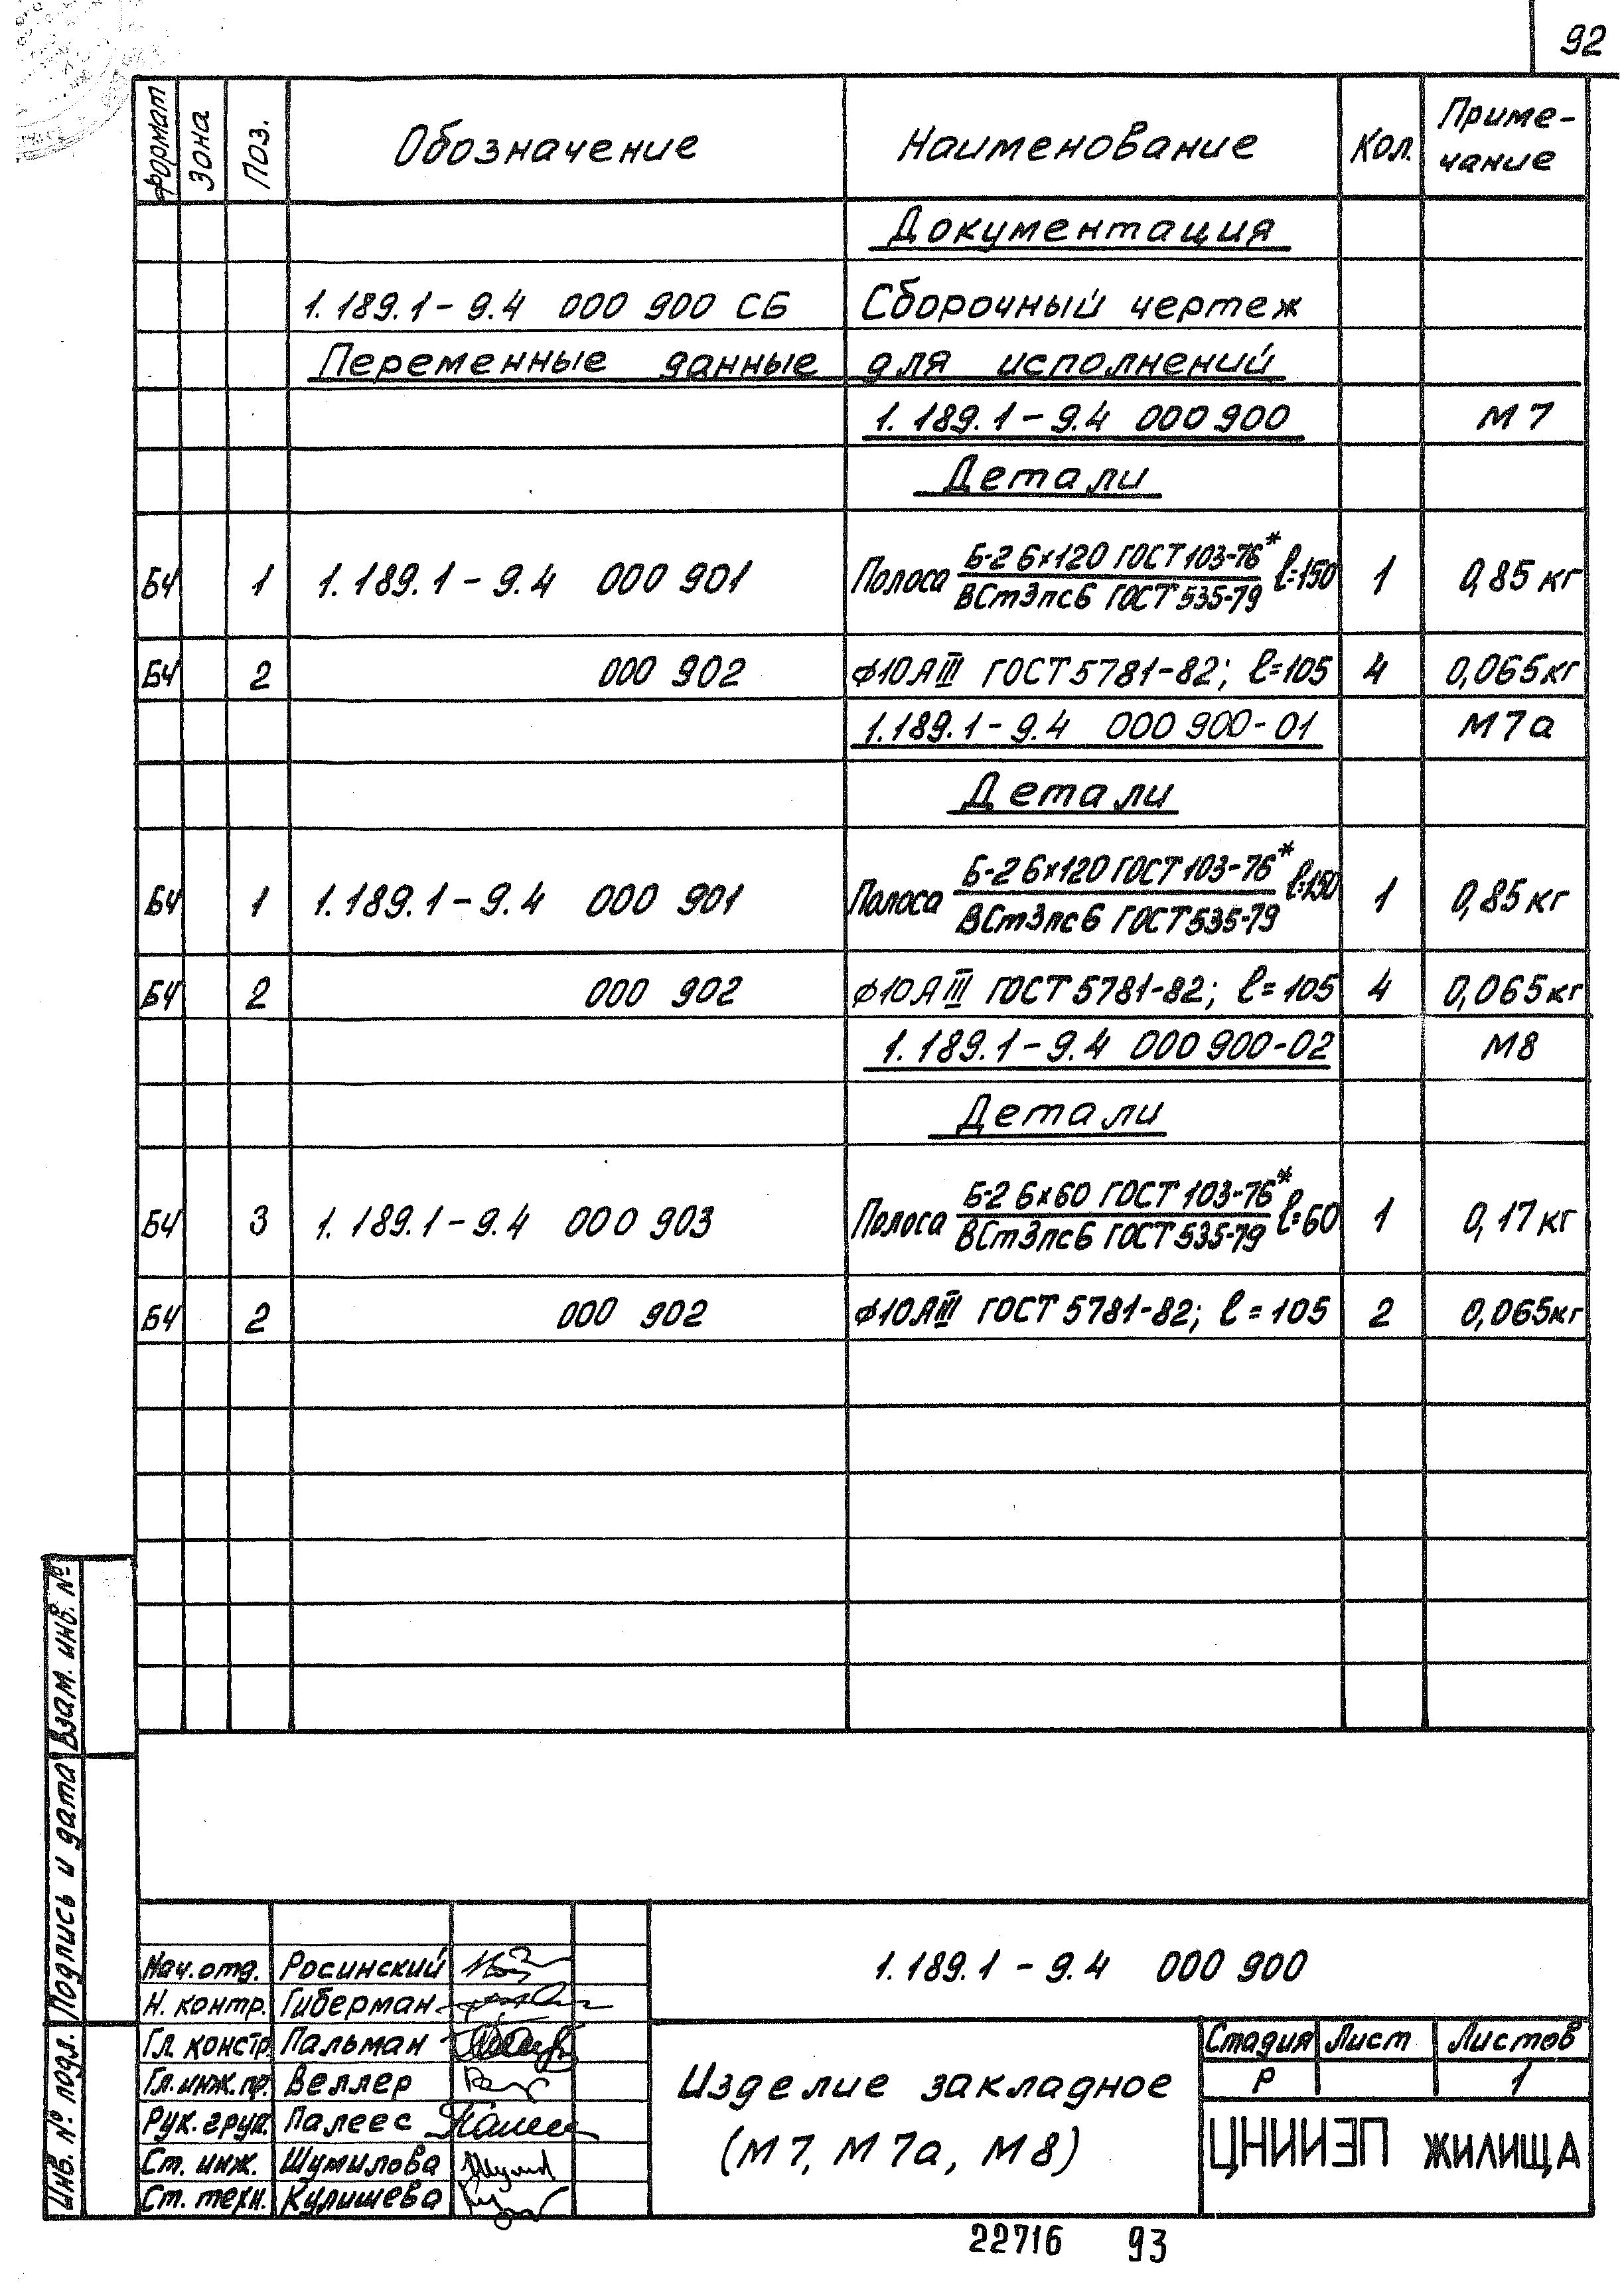 92
Формат Зона Поз. Обозначение Наименование Кол. Приме-
чание
Документация
1.189.1-9.4 000 900 СБ Сборочный чертеж
Переменные данные для исполнений
1.189.1-9.4 000 900 М7
Детали
Б4 1 1.189.1-9.4 000 901 Полоса Б-2 6х120 ГОСТ 103-76* / ВСт3пс6 ГОСТ 535-79 ℓ=150 1 0,85 кг
Б4 2 000 902 ⌀10АIII ГОСТ 5781-82; ℓ=105 4 0,065кг
1.189.1-9.4 000 900-01 М7а
Детали
Б4 1 1.189.1-9.4 000 901 Полоса Б-2 6х120 ГОСТ 103-76* / ВСт3пс6 ГОСТ 535-79 ℓ=150 1 0,85кг
Б4 2 000 902 ⌀10АIII ГОСТ 5781-82; ℓ=105 4 0,065кг
1.189.1-9.4 000 900-02 М8
Детали
Б4 3 1.189.1-9.4 000 903 Полоса Б-2 6х60 ГОСТ 103-76* / ВСт3пс6 ГОСТ 535-79 ℓ=60 1 0,17кг
Б4 2 000 902 ⌀10АIII ГОСТ 5781-82; ℓ=105 2 0,065кг
Взам. инв. №
Подпись и дата
Инв. № подл.
Нач. отд. Росинский
Н. контр. Гиберман
Гл. констр. Пальман
Гл. инж. пр. Веллер
Рук. груп. Палеес
Ст. инж. Шумилова
Ст. техн. Кулишева
1.189.1-9.4 000 900
Изделие закладное
(М7, М7а, М8)
Стадия Лист Листов
Р 1
ЦНИИЭП ЖИЛИЩА
22716 93